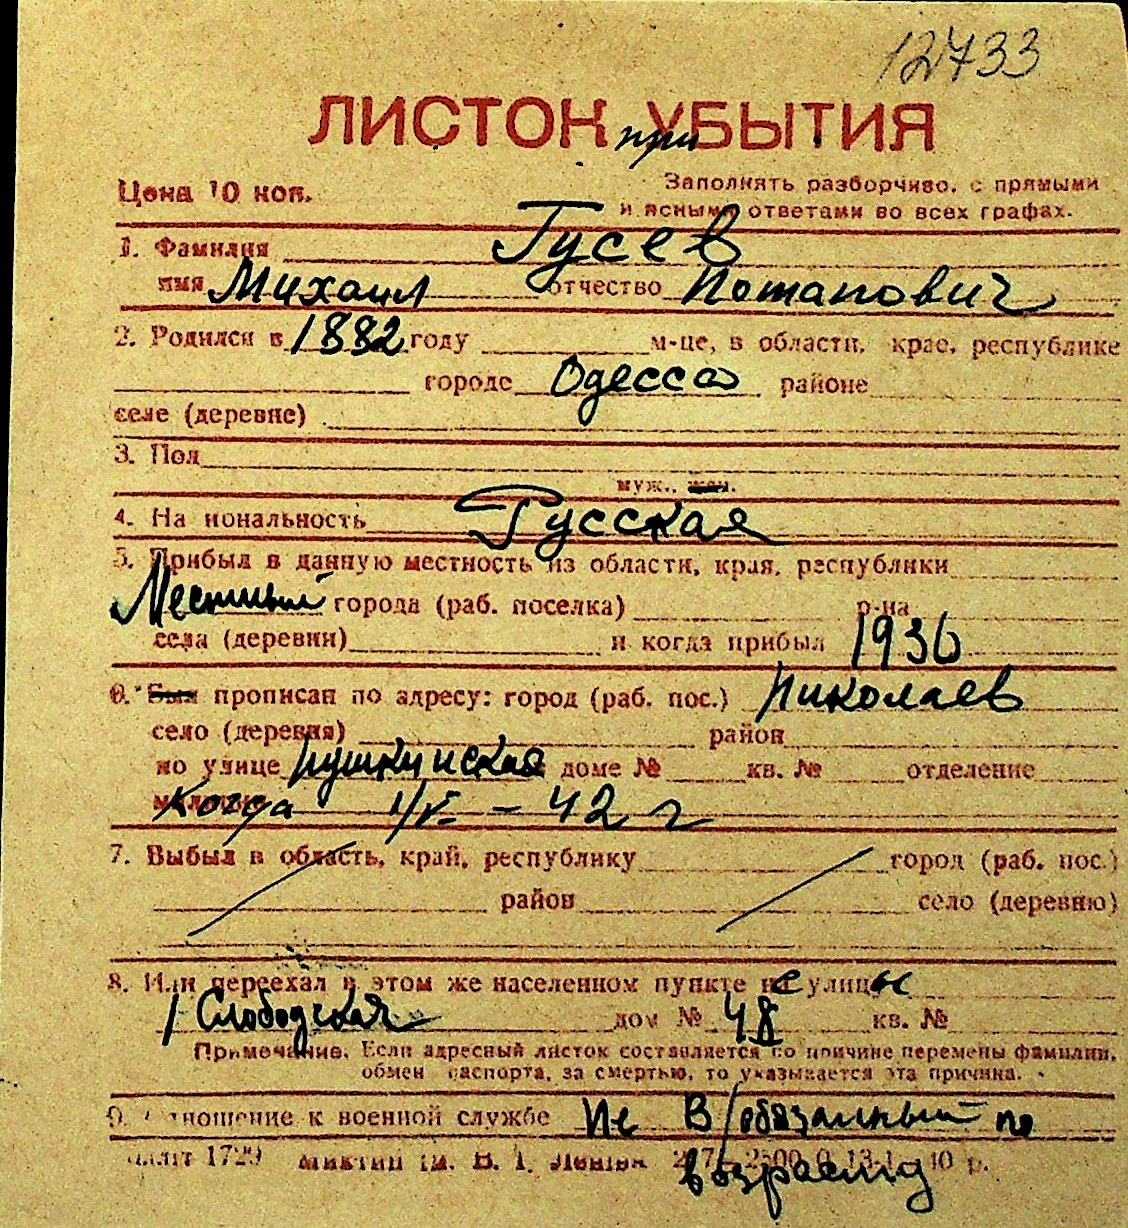 12733
ЛИСТОК при УБЫТИЯ
Цена 10 коп.
Заполнять разборчиво, с прямыми
и ясными ответами во всех графах.
1. Фамилия Гусев
имя Михаил отчество Потапович
2. Родился в 1882 году м-це, в области, крае, республике
городе Одесса районе
селе (деревне)
3. Пол
муж., жен.
4. На иональность Русская
5. Прибыл в данную местность из области, края, республики
Местный города (раб. поселка) р-на
села (деревни) и когда прибыл 1936
6. Был прописан по адресу: город (раб. пос.) Николаев
село (деревня) район
по улице Пушкинская доме № кв. № отделение
Когда 1/VI - 42 г
7. Выбыл в область, край, республику город (раб. пос.)
район село (деревню)
8. Или переехал в этом же населенном пункте с улицы
1 Слободская дом № 48 кв. №
Примечание. Если адресный листок составляется по причине перемены фамилии,
обмен паспорта, за смертью, то указывается эта причина.
9. тношение к военной службе Не В/обязанный по
возрасту
1729 Ленина